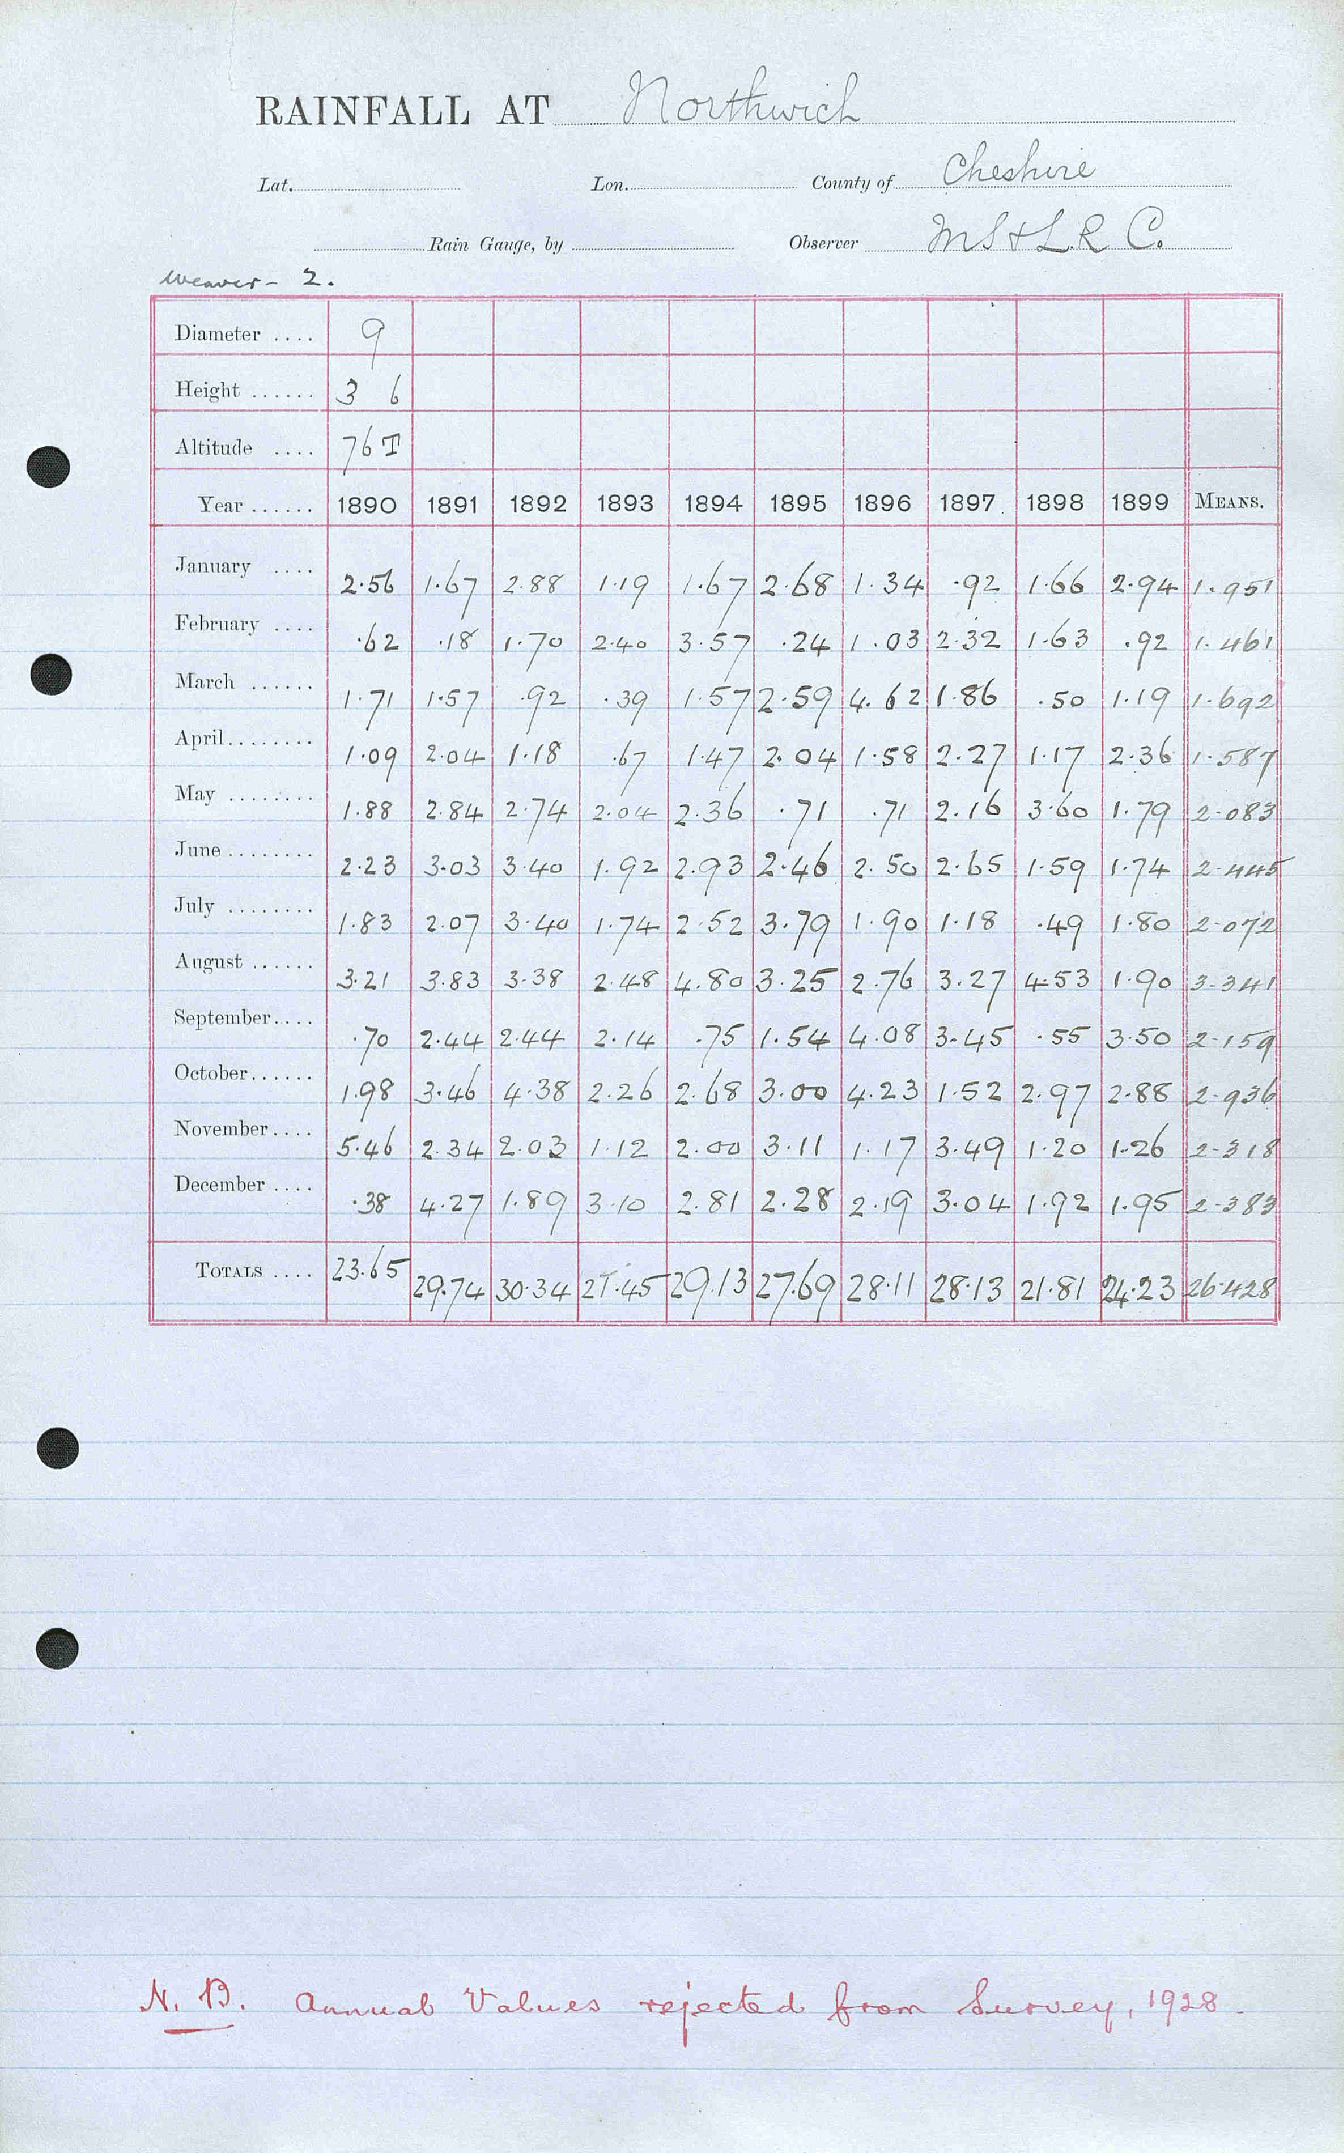 RAINFALL AT Northwich
Lat. Lon. County of Cheshire
Rain Gauge, by Observer MS&LR C.
Weaver - 2.
Diameter .... 9
Height ...... 3 6
Altitude .... 76 T
Year ...... 1890 1891 1892 1893 1894 1895 1896 1897 1898 1899 MEANS.
January .... 2.56 1.67 2.88 1.19 1.67 2.68 1.34 .92 1.66 2.94 1.951
February .... .62 .18 1.70 2.40 3.57 .24 1.03 2.32 1.63 .92 1.461
March ...... 1.71 1.57 .92 .39 1.57 2.59 4.62 1.86 .50 1.19 1.692
April........ 1.09 2.04 1.18 .67 1.47 2.04 1.58 2.27 1.17 2.36 1.587
May ........ 1.88 2.84 2.74 2.04 2.36 .71 .71 2.16 3.60 1.79 2.083
June ........ 2.23 3.03 3.40 1.92 2.93 2.46 2.50 2.65 1.59 1.74 2.445
July ........ 1.83 2.07 3.40 1.74 2.52 3.79 1.90 1.18 .49 1.80 2.072
August ...... 3.21 3.83 3.38 2.48 4.80 3.25 2.76 3.27 4.53 1.90 3.341
September.... .70 2.44 2.44 2.14 .75 1.54 4.08 3.45 .55 3.50 2.159
October...... 1.98 3.46 4.38 2.26 2.68 3.00 4.23 1.52 2.97 2.88 2.936
November.... 5.46 2.34 2.03 1.12 2.00 3.11 1.17 3.49 1.20 1.26 2.318
December .... .38 4.27 1.89 3.10 2.81 2.28 2.19 3.04 1.92 1.95 2.383
TOTALS .... 23.65 29.74 30.34 21.45 29.13 27.69 28.11 28.13 21.81 24.23 26.428
N. B. Annual Values rejected from Survey, 1928.